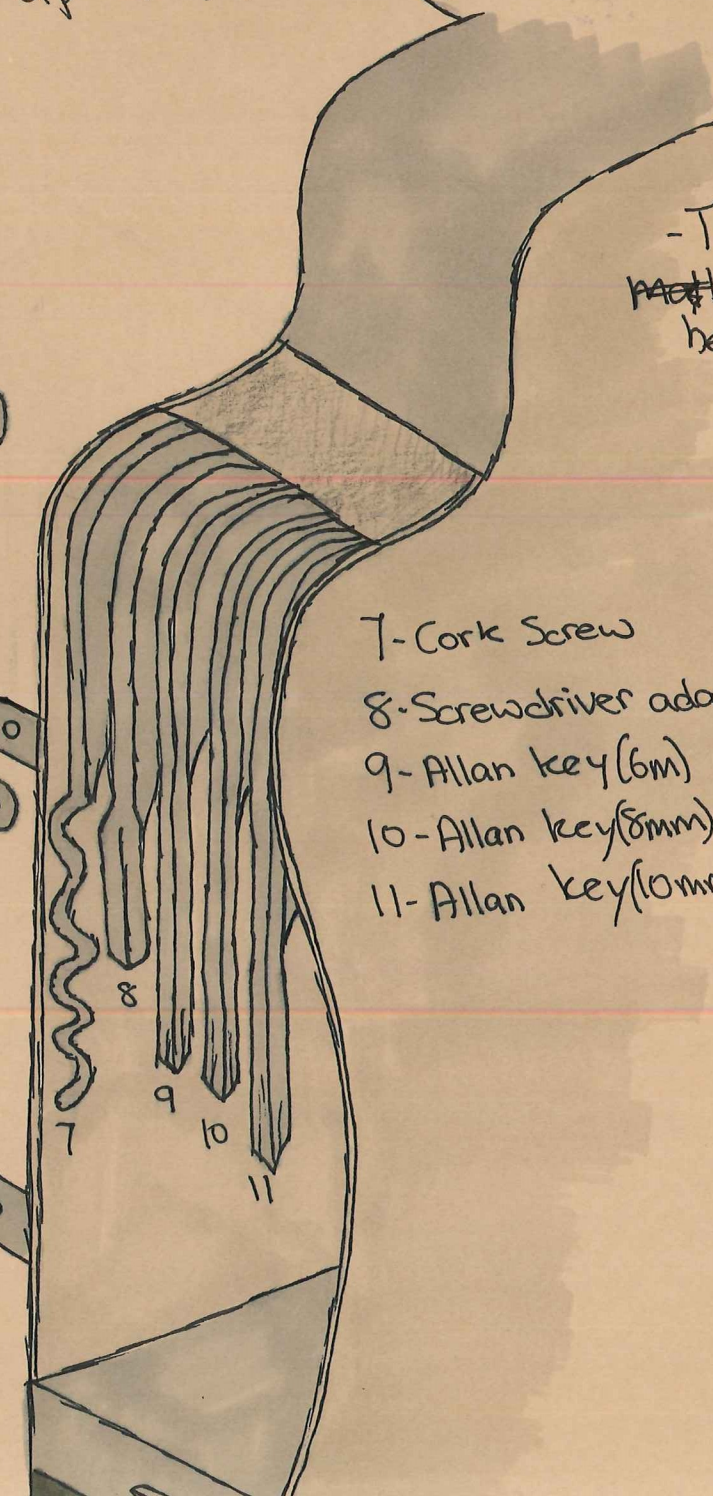 -T
7-Cork Screw
8-Screwdriver ada
9-Allan key(6m)
10-Allan key(8mm)
11-Allan key(10mm
8
9
10
7
11